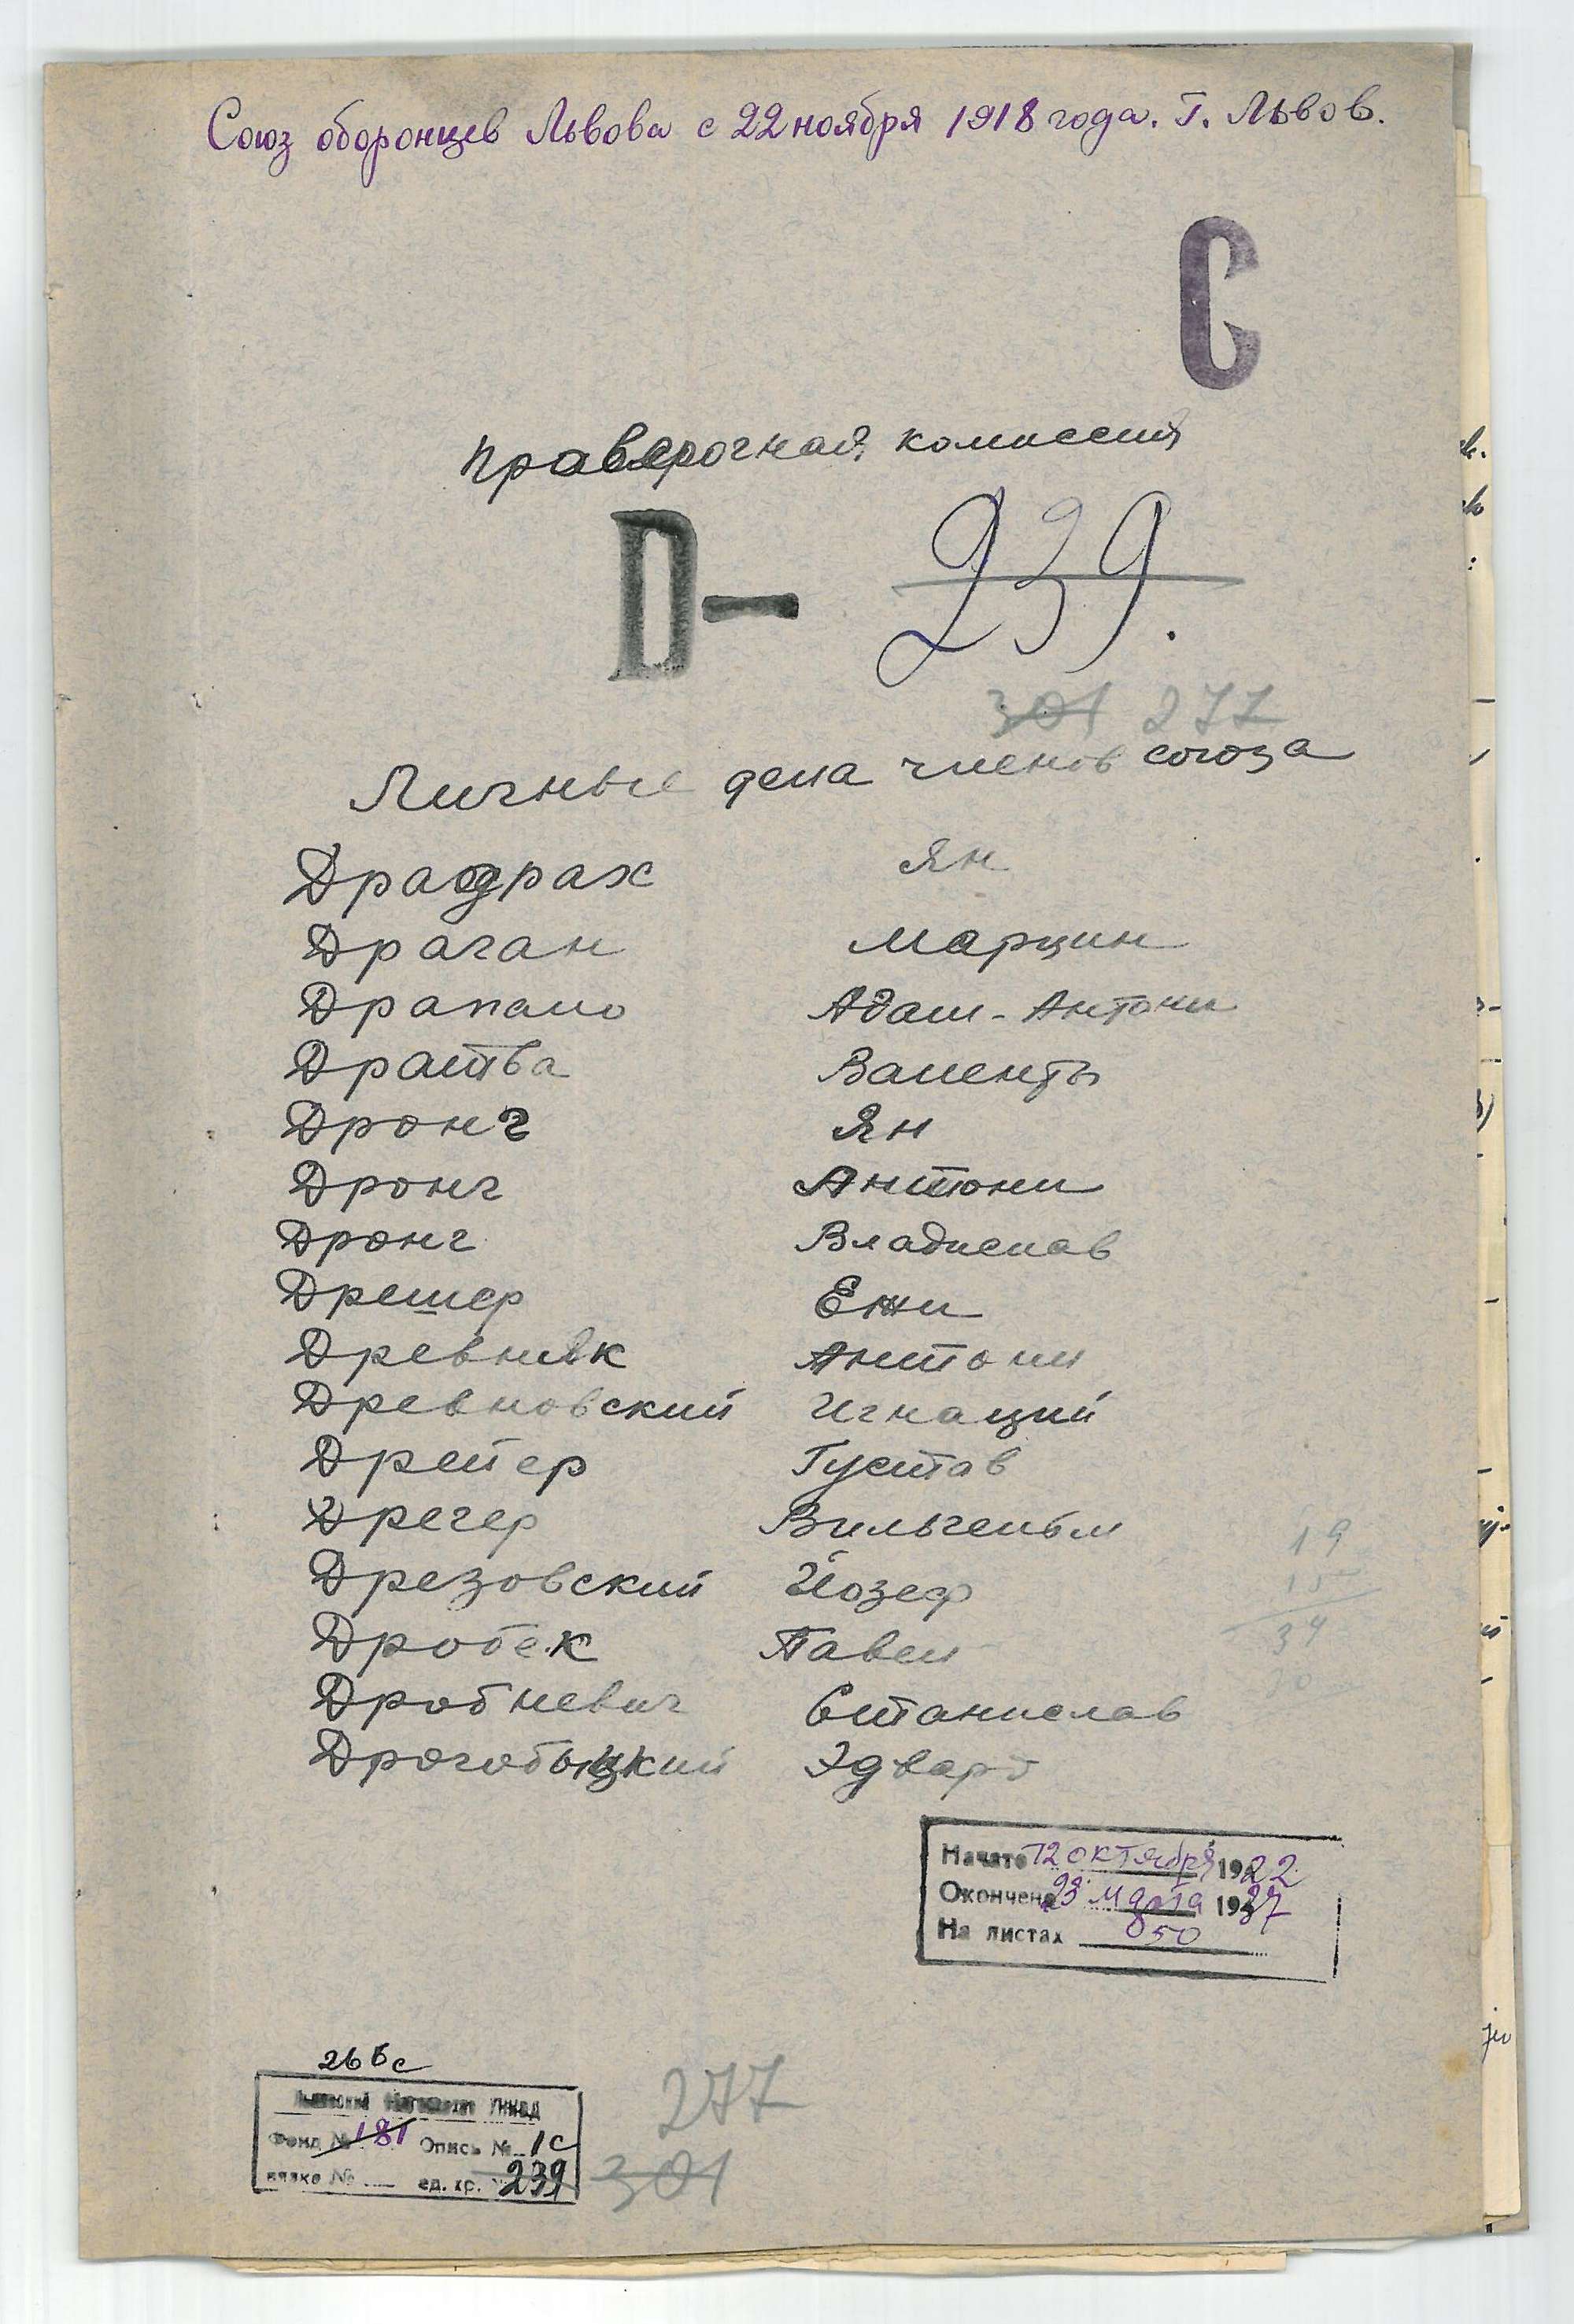 Союз оборонцев Львова с 22 ноября 1918 года. Г. Львов.
С
проверочная комиссия
D— 239.
301 277
Личные дела членов союза
Ян
Драган Марцин
Драпало Адам-Антони
Дратва Валенты
Дронг Ян
Дронг Антони
Дронг Владислав
Дрешер Ежи
Древняк Антони
Древновский Игнаций
Дрейер Густав
Дрегер Вильгельм
Дрезовский Йозеф
Дробек Павел
Дробневич Станислав
Дрогобыцкий Эдвард
19
15
34
Начато 12 октября 1922
Окончено 23 марта 1937
На листах 50
266 с
УНКВД
Фонд № 181 Опись № 1с
вязка № ед. хр. 239
277
301